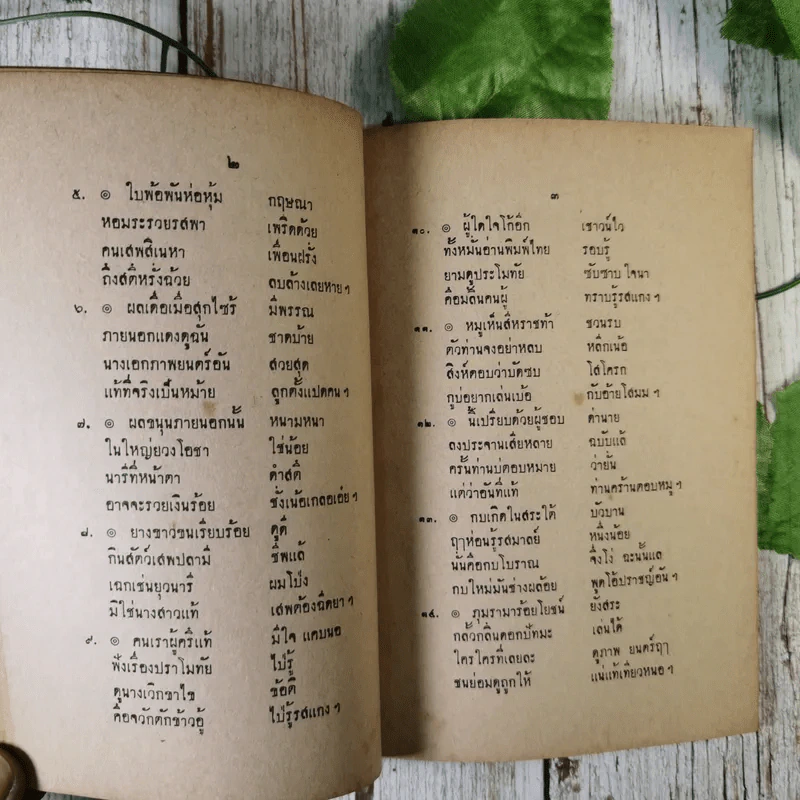 ๒
๕. ๏ ใบพ้อพันห่อหุ้ม กฤษณา
หอมระรวยรสพา เพริดด้วย
คนเสพสิเนหา เพื่อนฝรั่ง
ถึงสติหรั่งฉ้วย ลบล้างเลยหาย ฯ
๖. ๏ ผลเดื่อเมื่อสุกไซร้ มีพรรณ
ภายนอกแดงดูฉัน ชาดบ้าย
นางเอกภาพยนตร์อัน สวยสุด
แท้ที่จริงเป็นหม้าย ลูกตั้งแปดคน ฯ
๗. ๏ ผลขนุนภายนอกนั้น หนามหนา
ในใหญ่ยวงโอชา ใช่น้อย
นารีที่หน้าตา ดำสติ
อาจจะรวยเงินร้อย ชั่งเน้อเกลอเอ๋ย ฯ
๘. ๏ ยางขาวขนเรียบร้อย ดูดี
กินสัตว์เสพปลามี ชีพแล้
เฉกเช่นยุวนารี ผมโป่ง
มิใช่นางสาวแท้ เสพต้องฉีดยา ฯ
๙. ๏ คนเราผู้ครึแท้ มีใจ แคบนอ
ฟังเรื่องปราโมทัย ไป่รู้
ดูนางเวิกขาไข ข้อติ
คือจวักตักข้าวอู้ ไป่รู้รสแกง ฯ
๓
๑๐. ๏ ผู้ใดใจโก้อีก เชาวน์ไว
ทั้งหมั่นอ่านพิมพ์ไทย รอบรู้
ยามดูประโมทัย ซับซาบ ใจนา
คือมลิ้นคนผู้ ทราบรู้รสแกง ฯ
๑๑. ๏ หมูเห็นสีหราชท้า ชวนรบ
ตัวท่านจงอย่าหลบ หลีกเน้อ
สิงห์ตอบว่าบัดซบ โสโครก
กูบ่อยากเล่นเบ้อ กับอ้ายโสมม ฯ
๑๒. ๏ นี้เปรียบด้วยผู้ชอบ ค่านาย
ลงประจานเสียหลาย ฉบับแล้
ครั้นท่านบ่ตอบหมาย ว่ายั่น
แต่ว่าอันที่แท้ ท่านคร้านตอบหมู ฯ
๑๓. ๏ กบเกิดในสระใต้ บัวบาน
ฤๅห่อนรู้รสมาลย์ หนึ่งน้อย
นั้นคือกบโบราณ จึ่งโง่ ฉะนั้นแล
กบใหม่มันช่างผล้อย พูดโอ้ปราชญ์อัน ฯ
๑๔. ๏ ภุมราม่าร้อยโยชน์ ยังสระ
กลั้วกลิ่นดอกปัทมะ เล่นได้
ใครใครที่เลยละ ดูภาพ ยนตร์ฤๅ
ชนย่อมดูถูกให้ แน่แท้เทียวหนอ ฯ